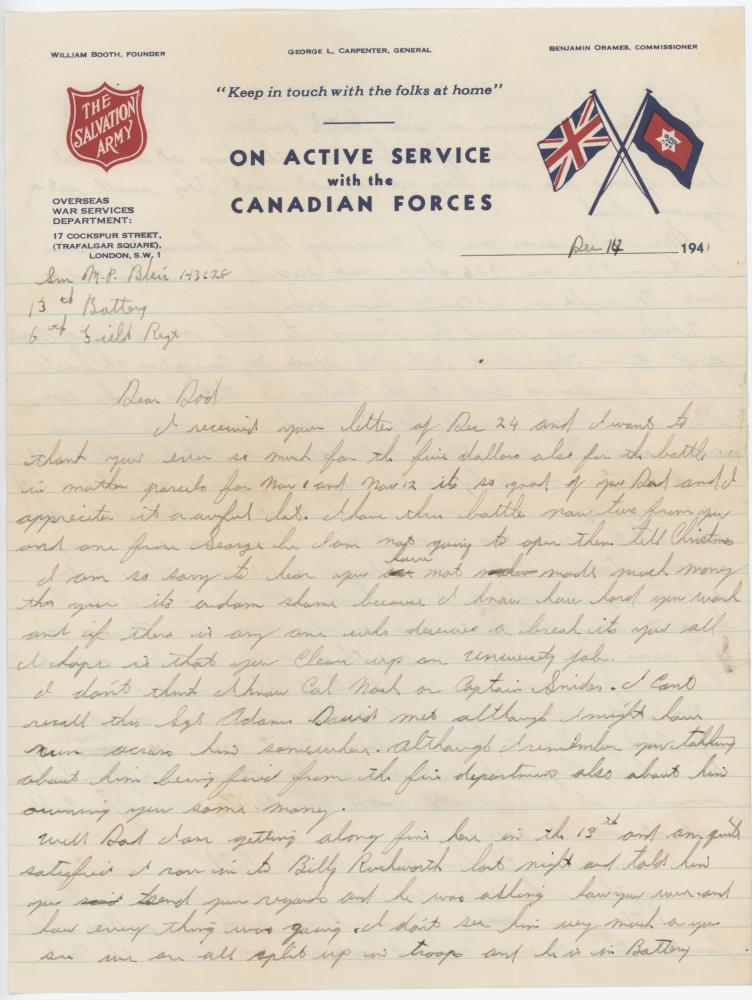 WILLIAM BOOTH, FOUNDER
GEORGE L. CARPENTER, GENERAL
BENJAMIN ORAMES, COMMISSIONER
"Keep in touch with the folks at home"
THE
SALVATION
ARMY
ON ACTIVE SERVICE
with the
CANADIAN FORCES
OVERSEAS
WAR SERVICES
DEPARTMENT:
17 COCKSPUR STREET,
(TRAFALGAR SQUARE),
LONDON, S.W. 1
Dec 14 1941
M.P. Blair H3628
13th Battery
6th Field Regt
Dear Dad
I received your letter of Dec 24 and I want to
thank you ever so much for the five dollars also for the bottle
in mother parcels for Nov 1 and Nov 12 its so good of you Dad and I
appreciate it a awful lot. I have three bottle now two from you
and one from George he I am not going to open them till Christmas
I am so sorry to hear you have not made much money
this year its a dam shame because I know how hard you work
and if there is any one who deserves a break its you all
I hope is that you clean up on university job.
I don't think I know Cal Nash or Captain Snider. I cant
recall this Sgt Adams David met although I might have
run across him somewhere. Although I remember you talking
about him being fired from the fire department also about him
owning you some money.
Well Dad I am getting along fine here in the 13th and am quite
satisfied I ran in to Billy Rushworth last night and told him
you send your regards and he was asking how you were and
how every thing was going. I don't see him very much as you
see we are all split up in troops and he is in Battery